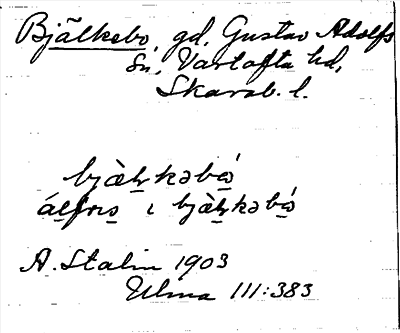 Bjälkebo, gd, Gustav Adolfs
sn, Vartofta hd,
Skarab. l.
bjàlkəbó
álfrɩs ɩ bjàlkəbó
A. Stalin 1903
Ulma 111:383